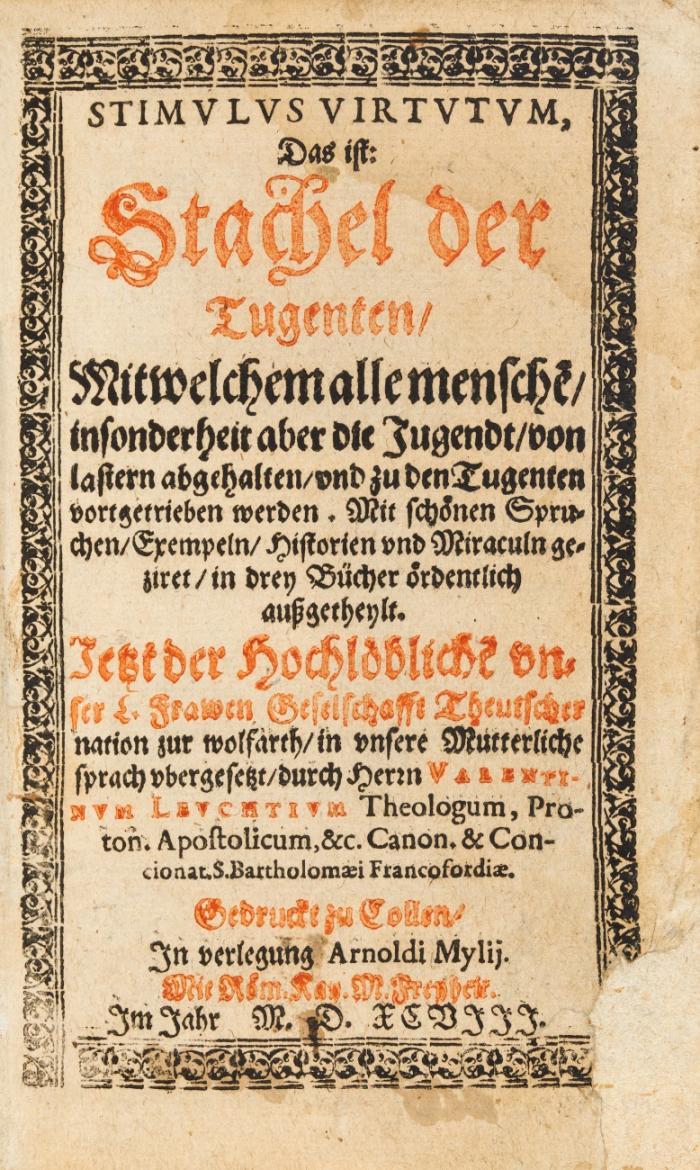 STIMVLVS VIRTVTVM,
Das iſt:
Stachel der
Tugenten/
Mit welchem alle menſchẽ/
inſonderheit aber die Jugendt/von
laſtern abgehalten/vnd zu den Tugenten
vortgetrieben werden . Mit ſchönen Spru-
chen/Exempeln/ Hiſtorien vnd Miraculn ge-
ziret / in drey Bücher ördentlich
außgetheylt.
Jetzt der Hochlöblichẽ vn-
ſer L. Frawen Geſelſchafft Theutſcher
nation zur wolfarth/in vnſere Mutterliche
ſprach vbergeſetzt/durch Herrn VALENTI-
NVM LEVCHTIVM Theologum, Pro-
ton. Apoſtolicum,&c. Canon. & Con-
cionat.S.Bartholomæi Francofordiæ.
Gedruckt zu Collen/
In verlegung Arnoldi Mylij.
Mit Röm. Kay. M. Freyheit.
Im Jahr M. D. XCVIII.